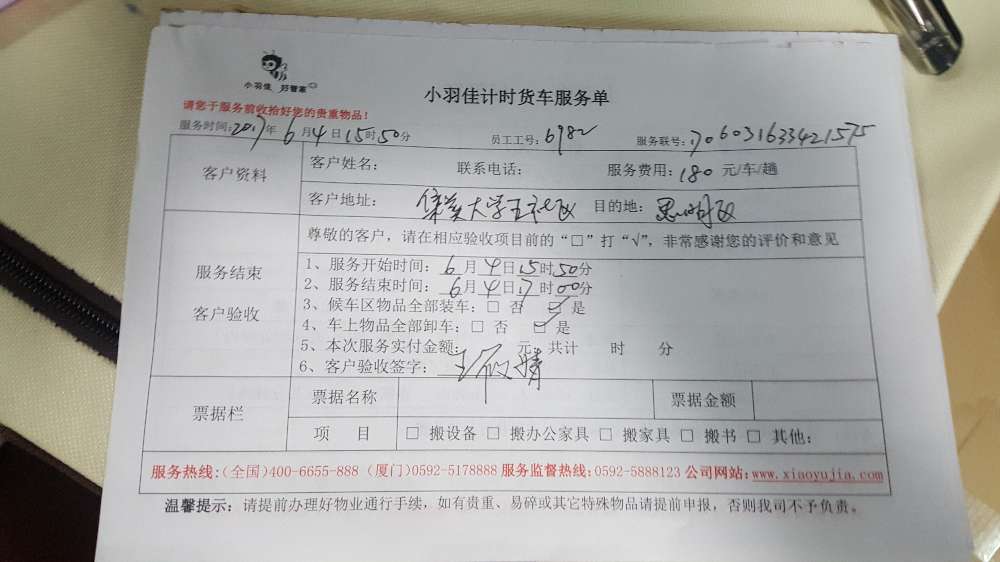 小羽佳 好管家
小羽佳计时货车服务单
请您于服务前收拾好您的贵重物品！
服务时间：2017年 6月 4日 15时 50分 员工工号：6982 服务联号：1706031633421575
客户资料
客户姓名： 联系电话： 服务费用：180 元/车/趟
客户地址： 集美大学 目的地：思明区
服务结束
客户验收
尊敬的客户，请在相应验收项目前的“□”打“√”，非常感谢您的评价和意见
1、服务开始时间：6月 4日 15时 50分
2、服务结束时间：6月 4日 17时 00分
3、候车区物品全部装车：□ 否 ☑ 是
4、车上物品全部卸车：□ 否 ☑ 是
5、本次服务实付金额： 元，共计 时 分
6、客户验收签字：
票据栏
票据名称 票据金额
项 目 □ 搬设备 □ 搬办公家具 □ 搬家具 □ 搬书 □ 其他：
服务热线：（全国）400-6655-888（厦门）0592-5178888 服务监督热线：0592-5888123 公司网站：www.xiaoyujia.com
温馨提示：请提前办理好物业通行手续，如有贵重、易碎或其它特殊物品请提前申报，否则我司不予负责。